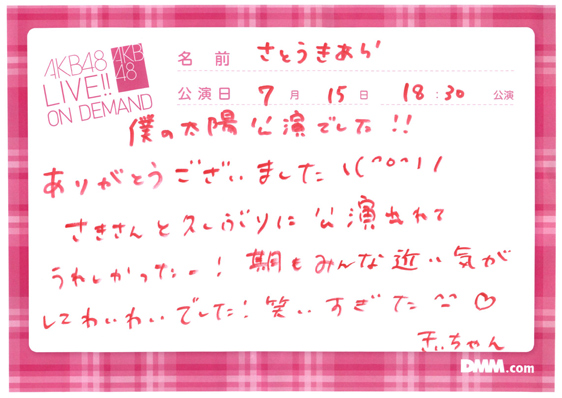 AKB48
LIVE!!
ON DEMAND
AKB
48
名前 さとうきあら
公演日 7月 15日 18:30 公演
僕の太陽公演でした!!
ありがとうございました\(^o^)/
さきさんと久しぶりに公演出れて
うれしかったー!期もみんな近い気が
してわいわいでした!笑いすぎた^^♡
きぃちゃん
DMM.com